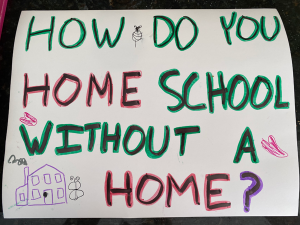 HOW DO YOU
HOME SCHOOL
WITHOUT A
HOME?